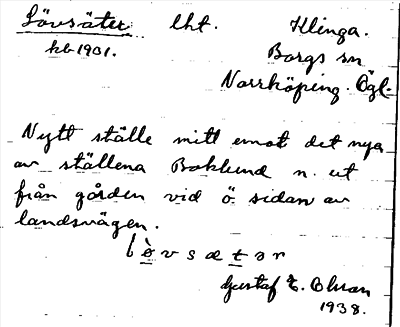 Lövsäter lht. Klinga.
kb 1901. Borgs sn
Norrköping. Ögl.
Nytt ställe mitt emot det nya
av ställena Boklund n. ut
från gården vid ö. sidan av
landsvägen.
lòvsætər
Gustaf E. Olsson
1938.